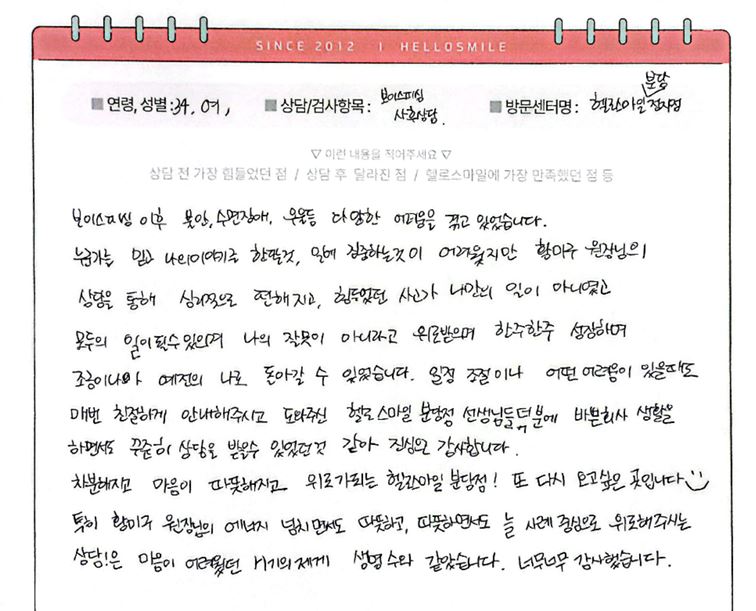 SINCE 2012 | HELLOSMILE
연령, 성별: 34, 여, 상담/검사항목: 보이스피싱 사후상담. 방문센터명: 헬로스마일 분당점
▽ 이런 내용을 적어주세요 ▽
상담 전 가장 힘들었던 점 / 상담 후 달라진 점 / 헬로스마일에 가장 만족했던 점 등
보이스피싱 이후 불안, 수면장애, 우울등 다양한 어려움을 겪고 있었습니다.
누군가를 믿고 나의이야기를 한다는것, 일에 집중하는것이 어려웠지만 황미주 원장님의
상담을 통해 심리적으로 편해지고, 힘들었던 사고가 나만의 일이 아니었고
모두의 일이 될수 있으며 나의 잘못이 아니라고 위로받으며 한주한주 성장하며
조금이나마 예전의 나로 돌아갈 수 있었습니다. 일정 조절이나 어떤 어려움이 있을때도
매번 친절하게 안내해주시고 도와주신 헬로스마일 분당점 선생님들 덕분에 바쁜회사 생활을
하면서도 꾸준히 상담을 받을수 있었던것 같아 진심으로 감사합니다.
차분해지고 마음이 따뜻해지고 위로가되는 헬로스마일 분당점! 또 다시 오고싶은 곳입니다
특히 황미주 원장님의 에너지 넘치면서도 따뜻하고, 따뜻하면서도 늘 사례 중심으로 위로해주시는
상담!은 마음이 어려웠던 시기의 제게 생명수와 같았습니다. 너무너무 감사했습니다.